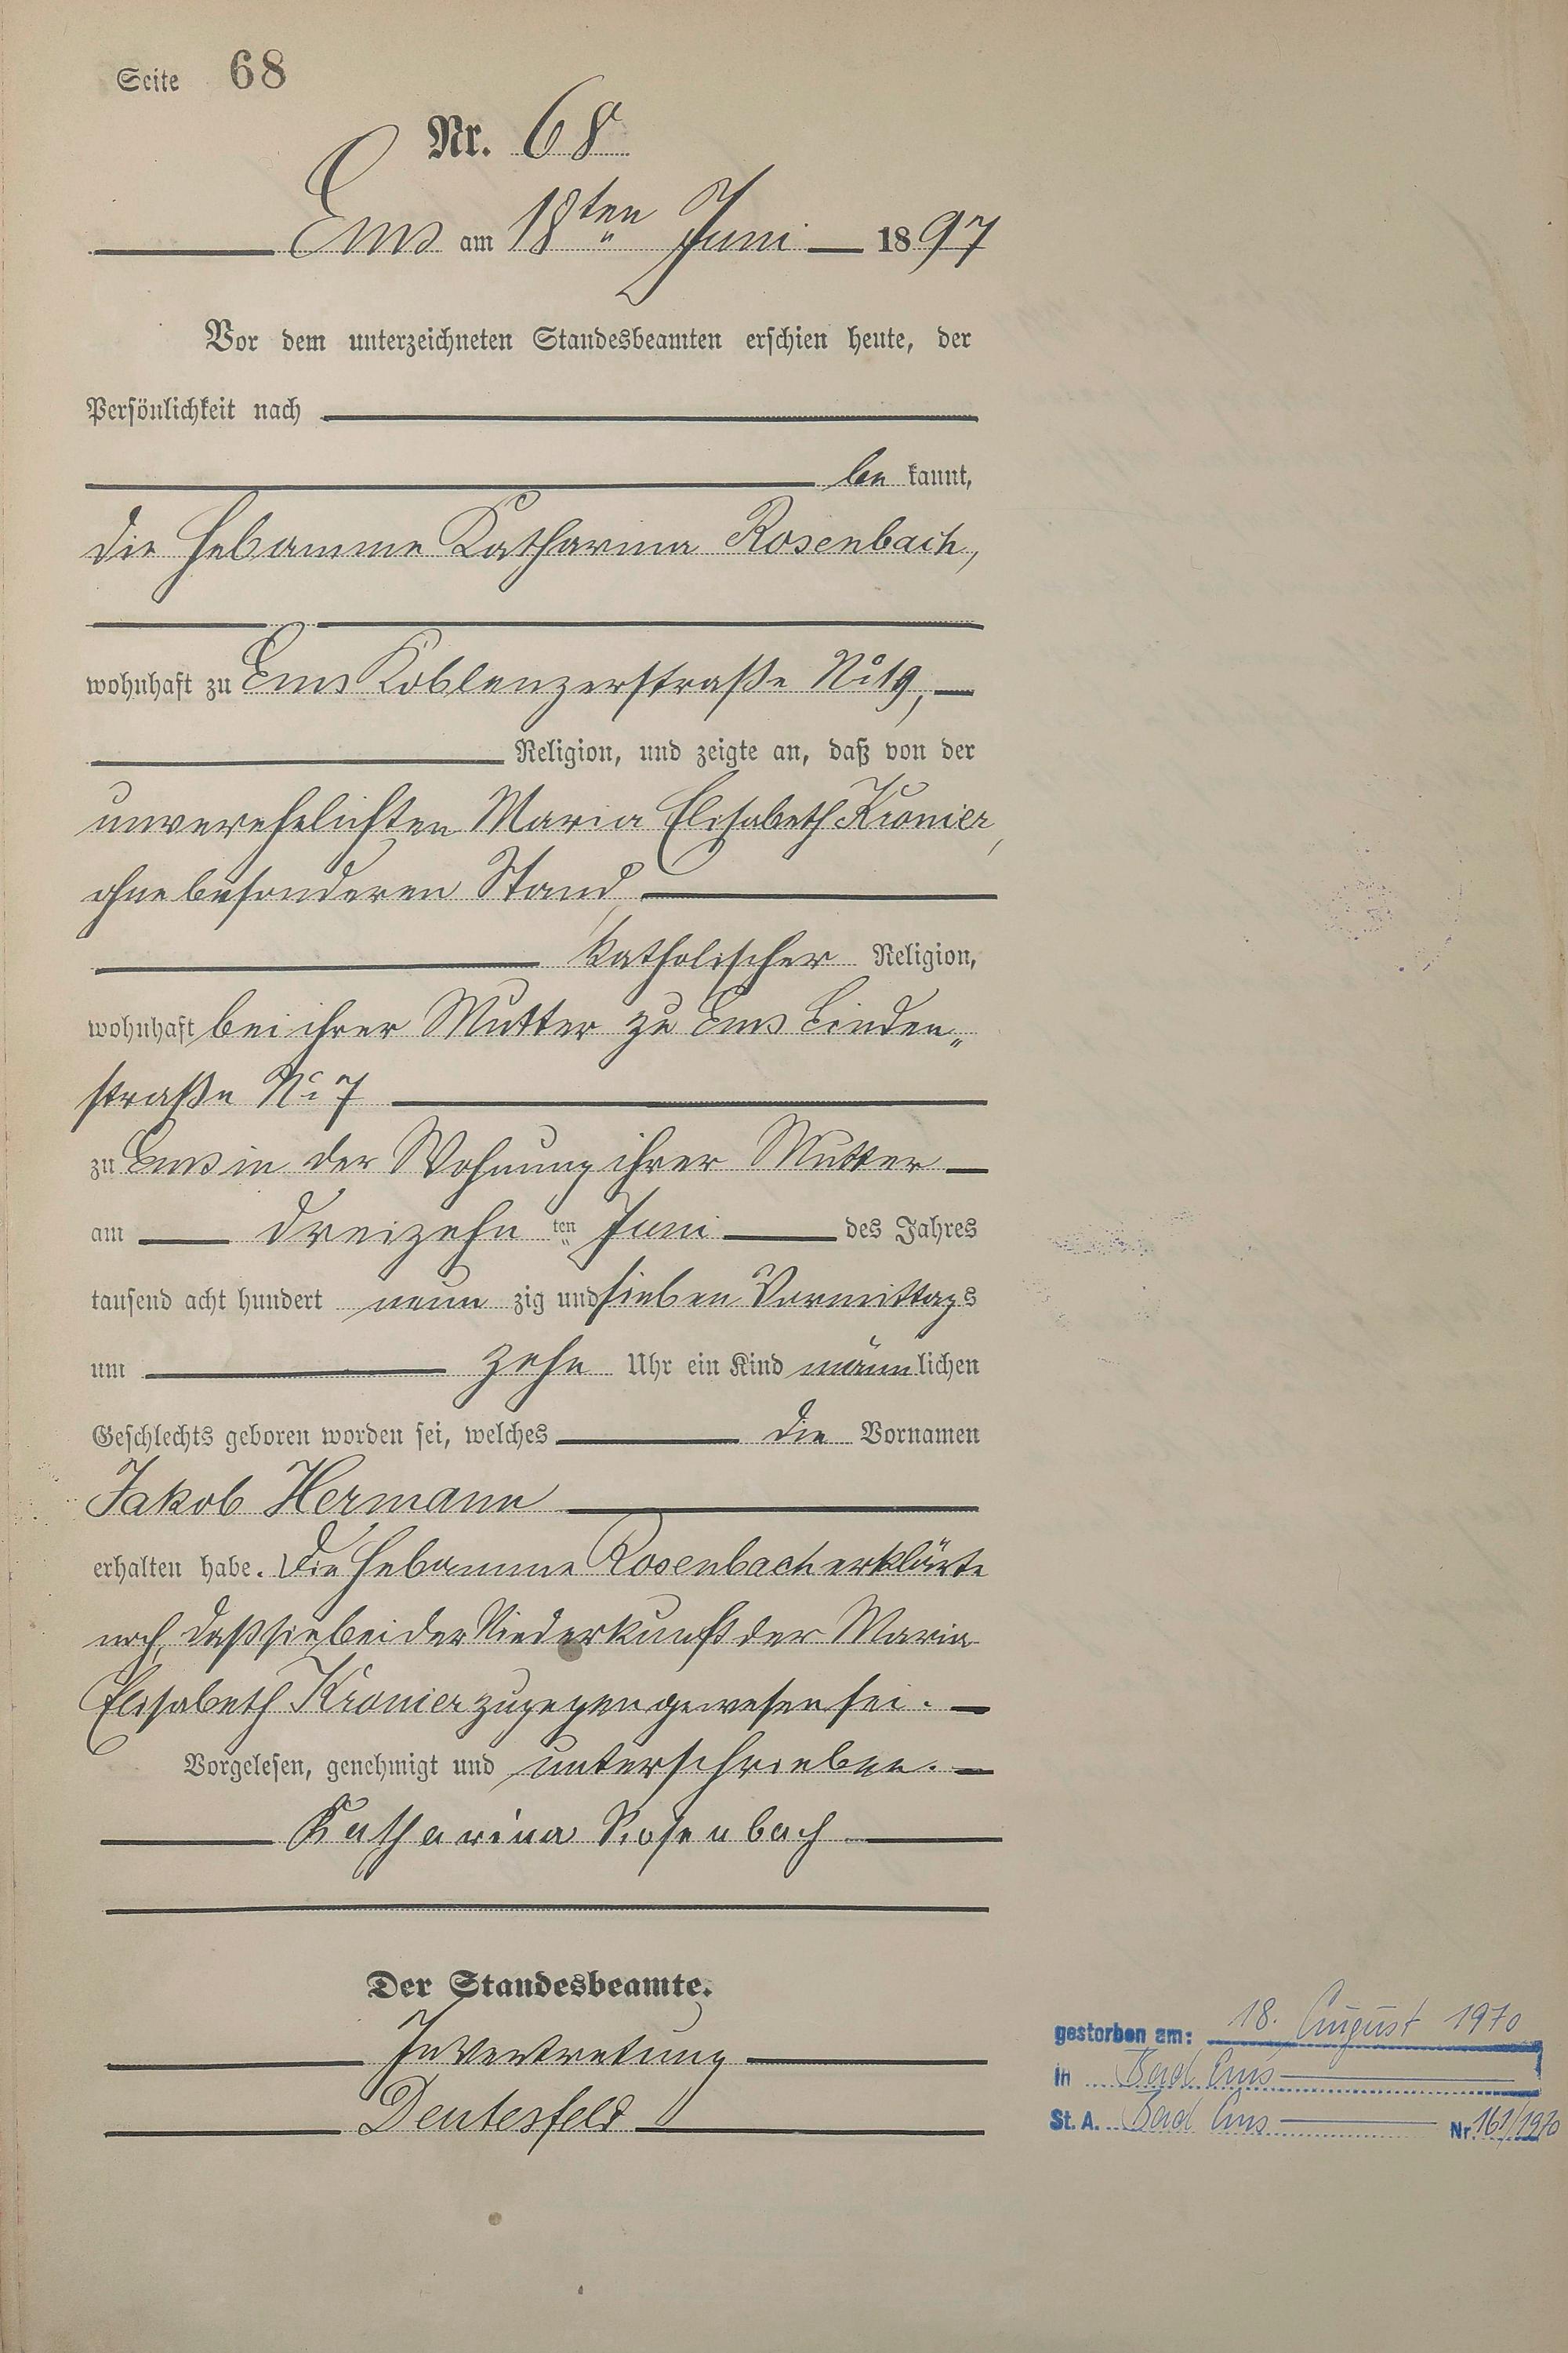 Seite 68
Nr. 68
Ems am 18ten Juni 1897
Vor dem unterzeichneten Standesbeamten erschien heute, der
Persönlichkeit nach
be kannt,
die Hebamme Katharina Rosenbach,
wohnhaft zu Ems Koblenzerstraße No 19,
Religion, und zeigte an, daß von der
unverehelichten Maria Elisabeth Kronier,
ohne besonderen Stand,
katholischer Religion,
wohnhaft bei ihrer Mutter zu Ems Linden„
straße No 7
zu Ems in der Wohnung ihrer Mutter
am dreizehn ten Juni des Jahres
tausend acht hundert neun zig und sieben Vormittags
um zehn Uhr ein Kind männlichen
Geschlechts geboren worden sei, welches die Vornamen
Jakob Hermann
erhalten habe. Die Hebamme Rosenbach erklärte
noch, daß sie bei der Niederkunft der Maria
Elisabeth Kronier zugegen gewesen sei.
Vorgelesen, genehmigt und unterschrieben.
Katharina Rosenbach
Der Standesbeamte.
In Vertretung
Deutesfeld
gestorben am: 18. August 1970
in Bad Ems
St. A. Bad Ems Nr. 161/1970